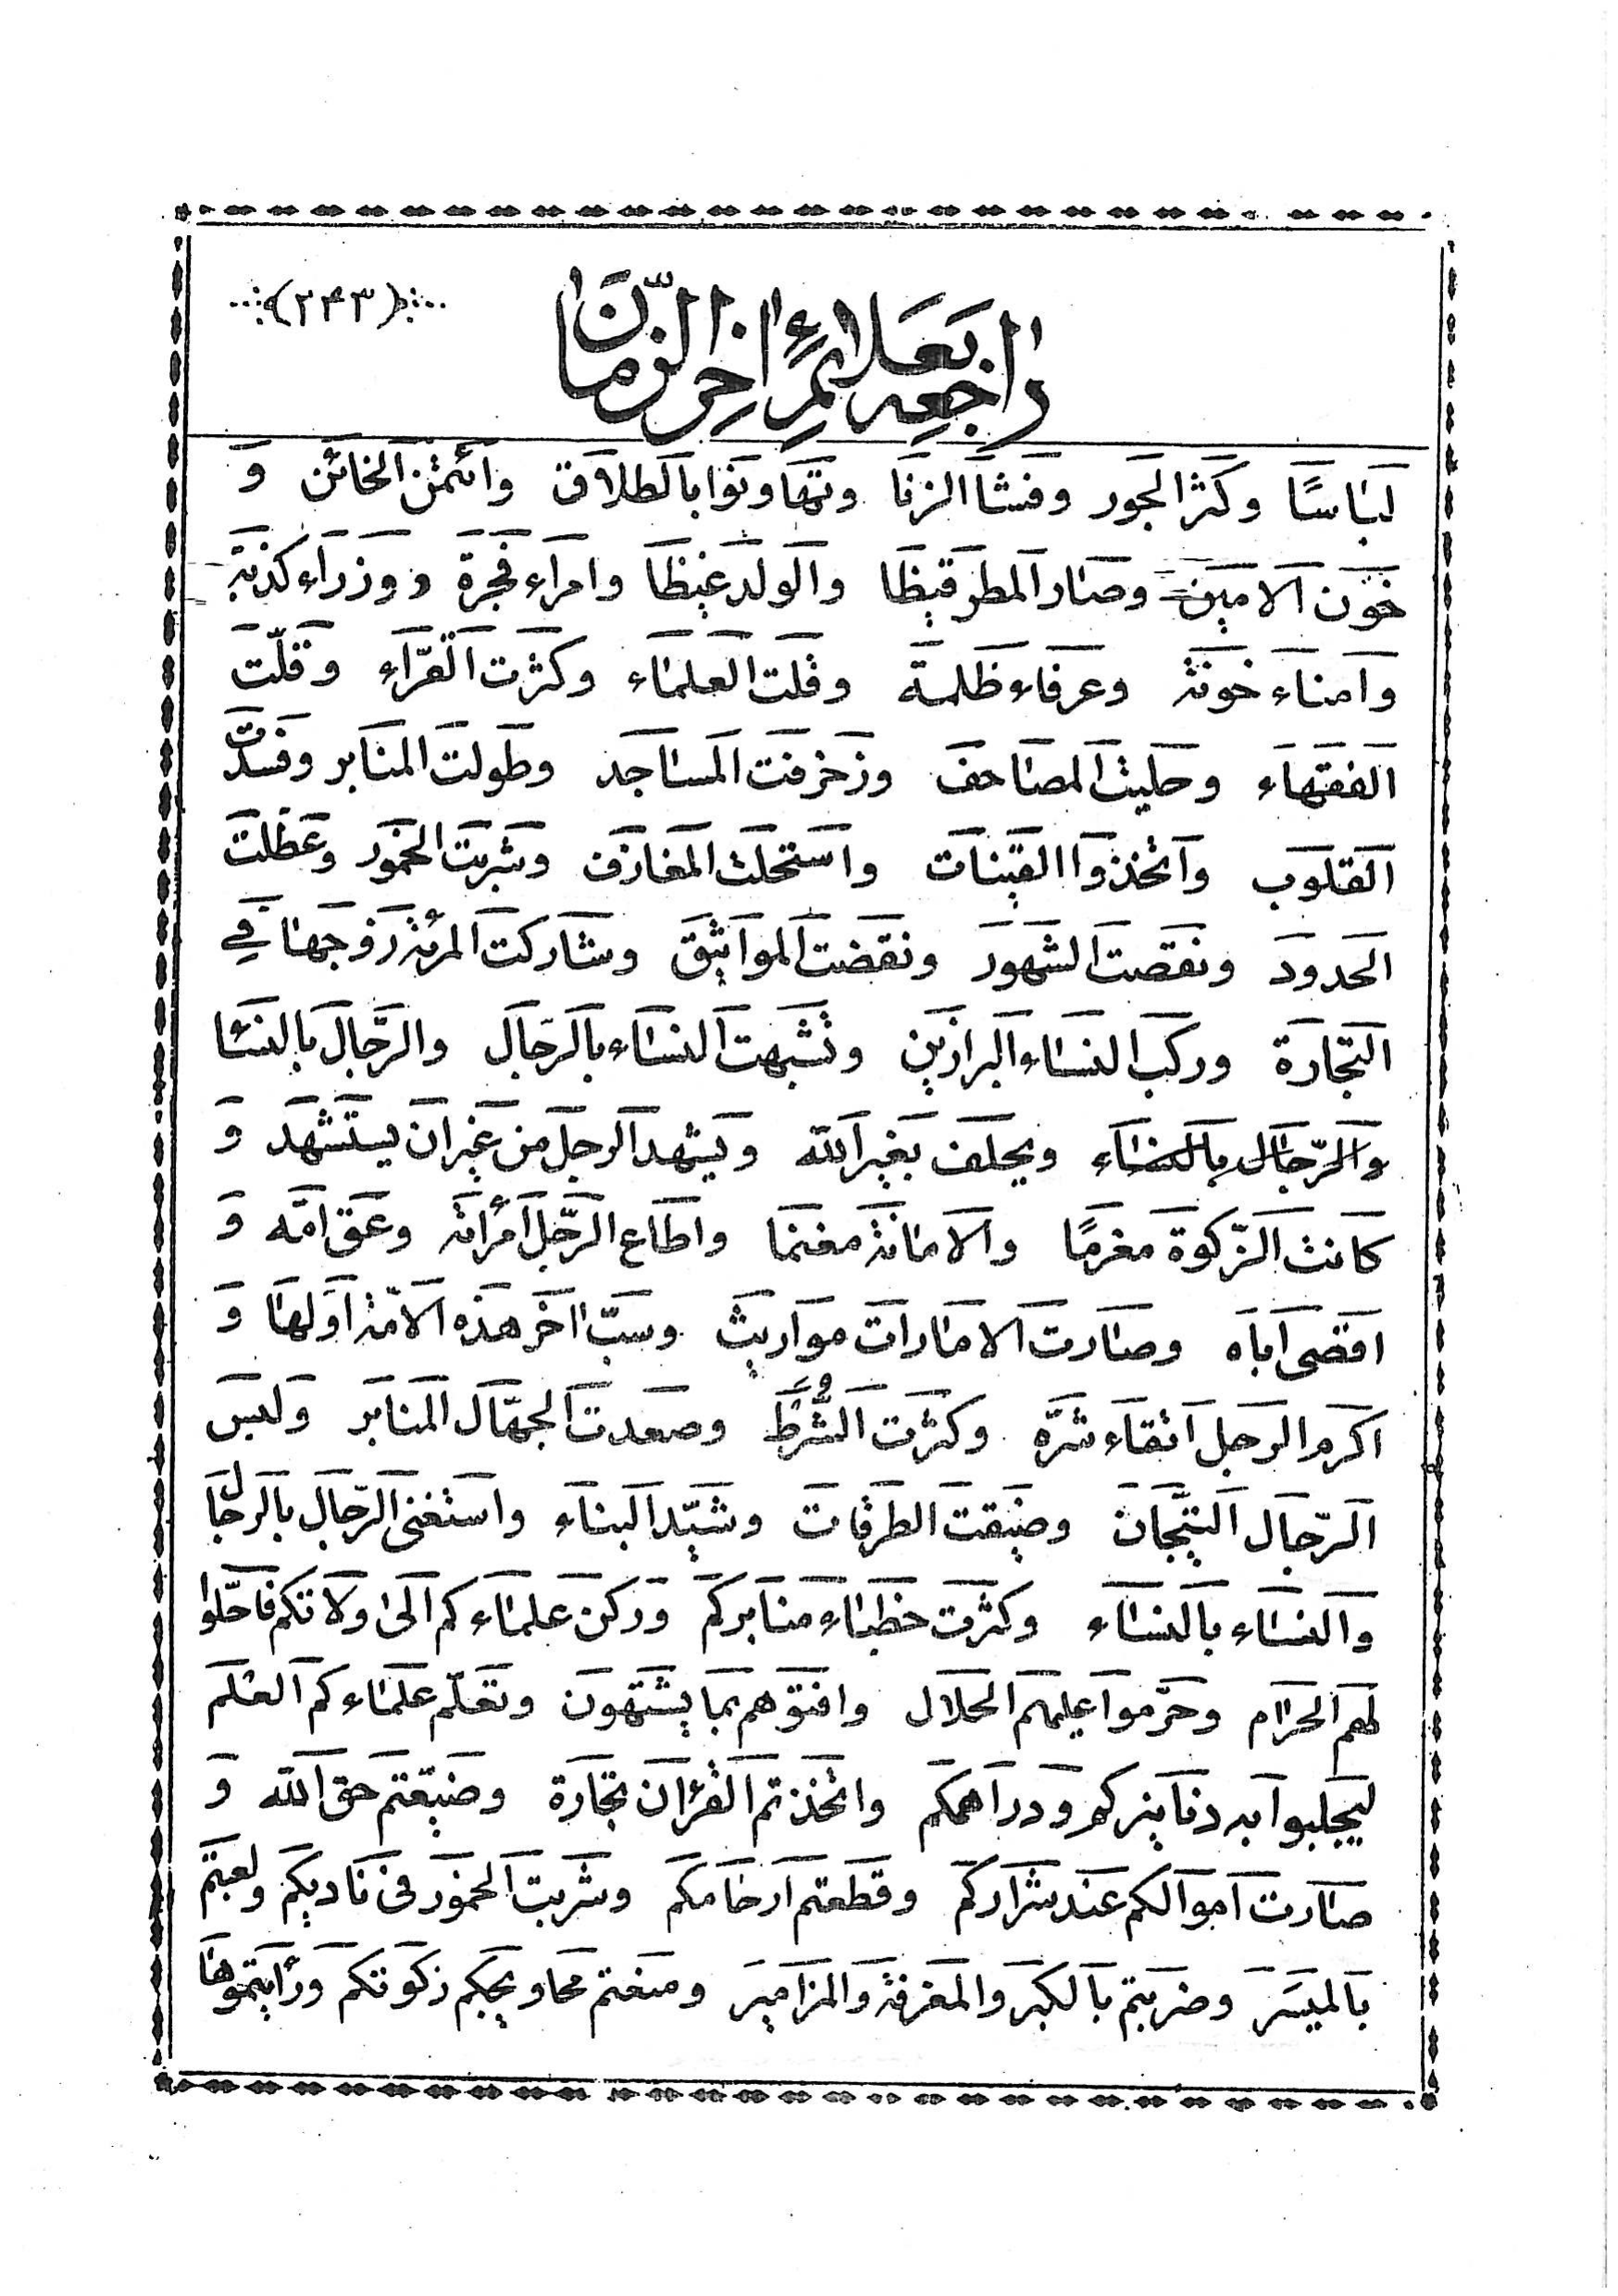 (۲۴۳)
راجعه بعلائم اخر الزّمان
لباسًا وكثر الجور وفشا الزنا وتهاونوا بالطلاق وائتمن الخائن و
خون الامين وصار المطر قيظا والولد غيظا وامراء فجرة ووزراء كذبة
وامناء خونة وعرفاء ظلمة وقلت العلماء وكثرت القرّاء وقلّت
الفقهاء وحليت المصاحف وزخرفت المساجد وطولت المنابر وفسدت
القلوب واتخذوا القينات واستحلت المعازف وشربت الخمور وعطلت
الحدود ونقصت الشهور ونقضت المواثيق وشاركت المرئة زوجها في
التجارة وركب النساء البراذين وتشبهت النساء بالرجال والرّجال بالنسا
والرّجال بالنساء ويحلف بغير الله ويشهد الرجل من غير ان يستشهد و
كانت الزّكوة مغرمًا والامانة مغنما واطاع الرّجل امرأته وعق امّه و
اقصى اباه وصارت الامارات مواريث وسبّ اخر هذه الامّة اولها و
اكرم الرجل اتقاء شرّه وكثرت الشُّرَطُ وصعدت الجهّال المنابر ولبس
الرّجال التيّجان وضيقت الطرقات وشيّد البناء واستغنى الرّجال بالرجال
والنساء بالنساء وكثرت خطباء منابركم وركن علماءكم الى ولاتكم فاحّلوا
لهم الحرام وحرّموا عليهم الحلال وافتوهم بما يشتهون وتعلّم علماءكم العلم
ليجلبوا به دنانيركم ودراهمكم واتخذتم القرءان تجارة وضيّعتم حق الله و
صارت اموالكم عند شراركم وقطعتم ارحامكم وشربت الخمور فى ناديكم ولعبتم
بالميسر وضربتم بالكبر والمعزفة والمزامير ومنعتم محاويجكم زكوتكم ورأيتموها